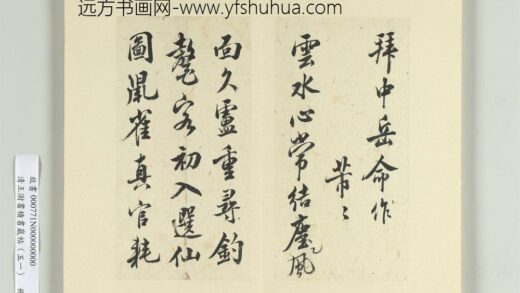 远方书画网-www.yfshuhua.com
拜中岳命作
芾〻
雲水心常結塵風
面久盧重尋釣
鼇客初入選仙
圖鼠雀真官耗
故書 000771N000000000
清王澍書積書巖帖（五一）